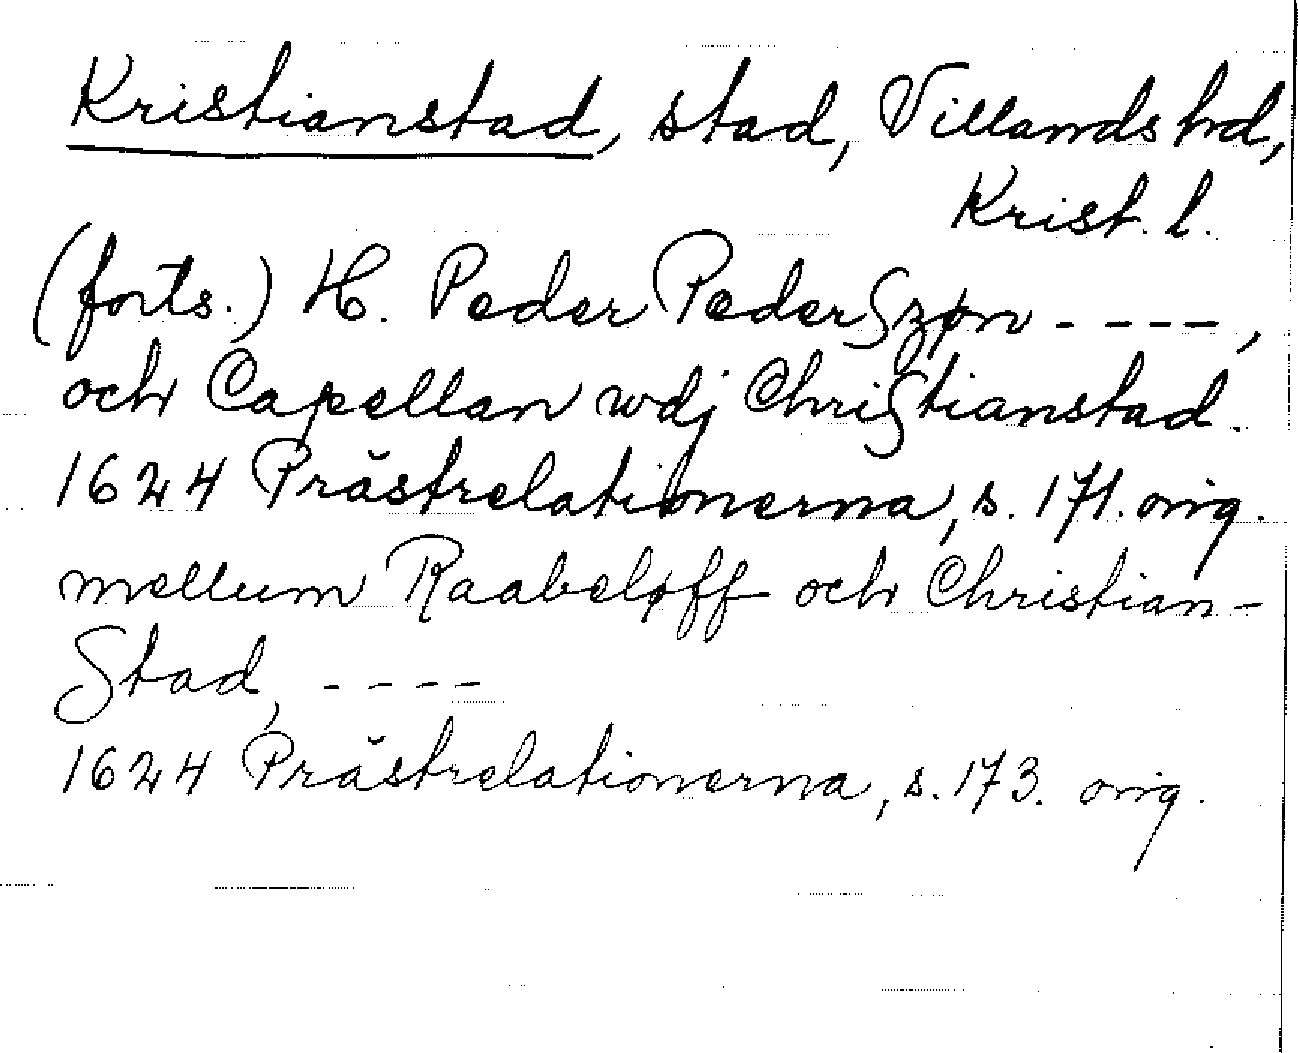 Kristianstad, stad, Villands hd,
Krist. l.
(forts.) H. Peder PederSzøn - - - -,
och Capellan wdj ChriStianstad.
1624 Prästrelationerna, s. 171. orig.
mellum Raabeløff och Christian-
Stad, - - - -
1624 Prästrelationerna, s. 173. orig.